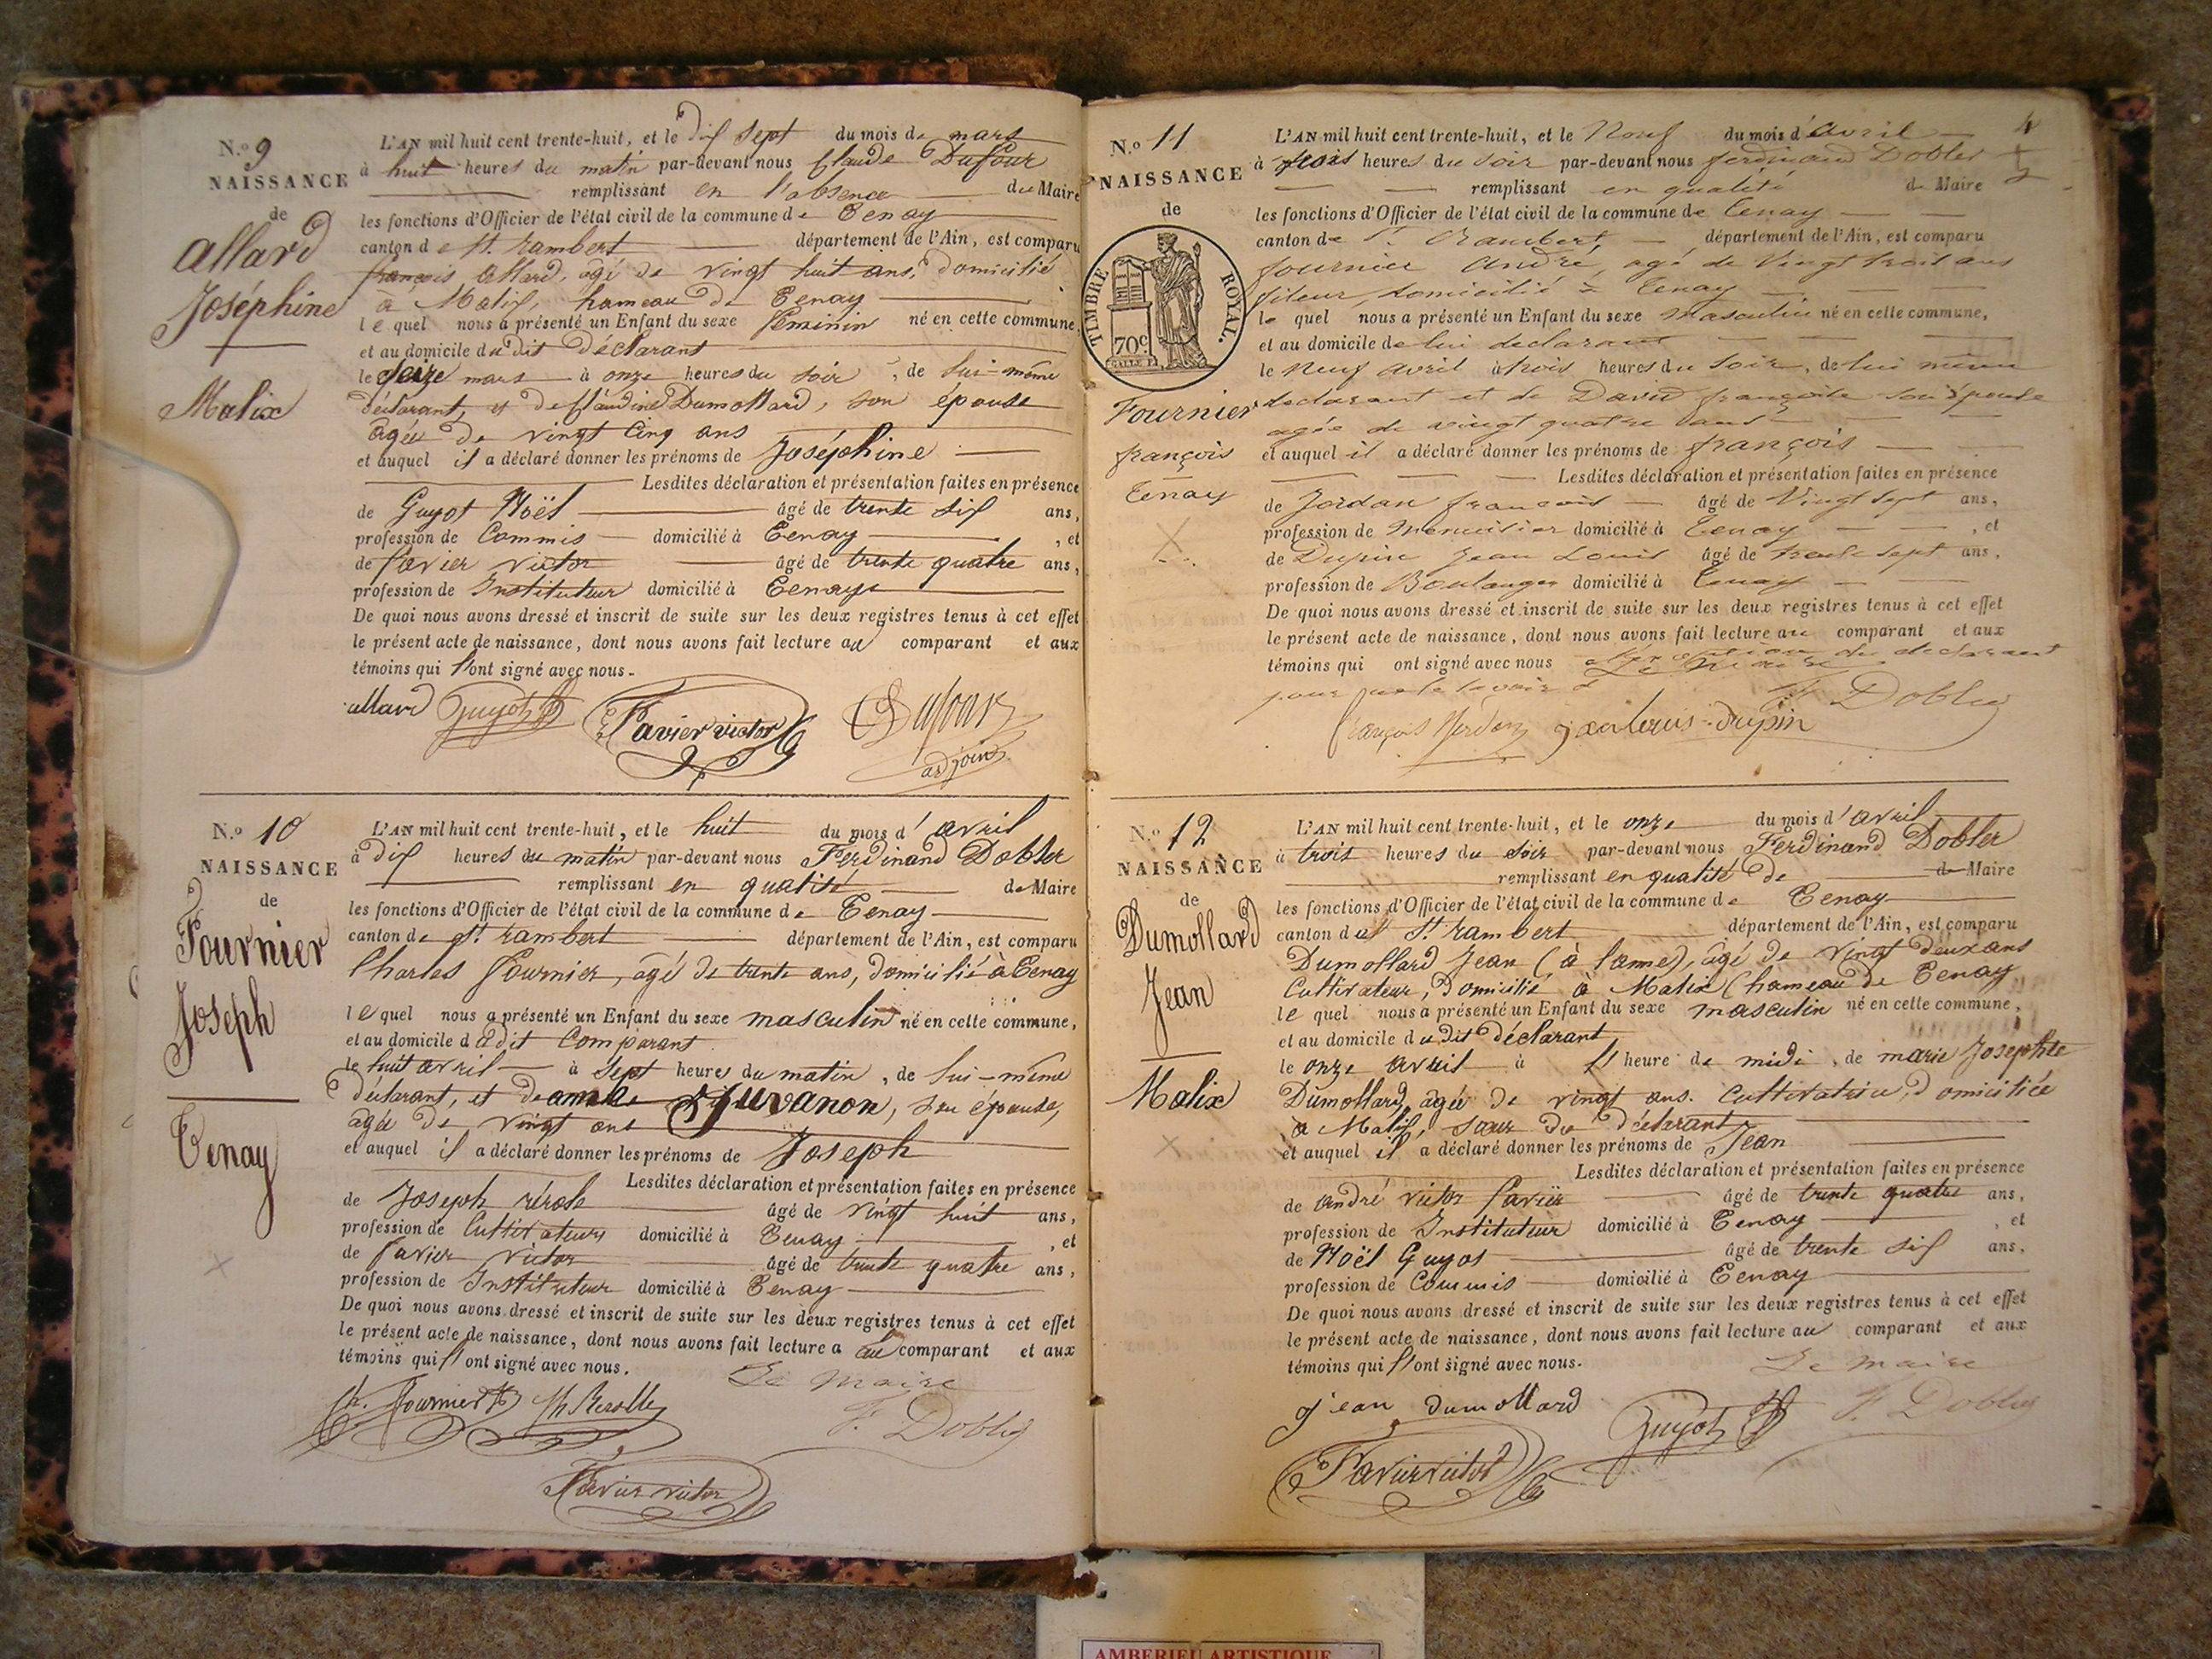 N.o 9
NAISSANCE
de
allard
Joséphine
Malix
L'AN mil huit cent trente-huit, et le dix sept du mois de mars
à huit heures du matin par-devant nous Claude Dufour
remplissant en l'absence du Maire
les fonctions d'Officier de l'état civil de la commune de Tenay
canton de St. rambert département de l'Ain, est comparu
françois allard, agé de vingt huit ans, domicilié
à Malix, hameau de Tenay
lequel nous a présenté un Enfant du sexe féminin né en cette commune,
et au domicile du dit déclarant
le seize mars à onze heures du soir, de lui-même
déclarant, et de Claudine Dumollard, son épouse
agée de vingt cinq ans
et auquel il a déclaré donner les prénoms de Joséphine
Lesdites déclaration et présentation faites en présence
de Guyot Noël âgé de trente six ans,
profession de Commis domicilié à Tenay, et
de favier victor âgé de trente quatre ans,
profession de Instituteur domicilié à Tenay
De quoi nous avons dressé et inscrit de suite sur les deux registres tenus à cet effet
le présent acte de naissance, dont nous avons fait lecture au comparant et aux
témoins qui l'ont signé avec nous.
allard Guyot Favier victor Dufour
adjoint
N.o 10
NAISSANCE
de
Fournier
Joseph
Tenay
L'AN mil huit cent trente-huit, et le huit du mois d'avril
à dix heures du matin par-devant nous Ferdinand Dobler
remplissant en qualité de Maire
les fonctions d'Officier de l'état civil de la commune de Tenay
canton de St. rambert département de l'Ain, est comparu
Charles Fournier, agé de trente ans, domicilié à Tenay
lequel nous a présenté un Enfant du sexe masculin né en cette commune,
et au domicile dudit Comparant
le huit avril à sept heures du matin, de lui-même
déclarant, et de Juvanon, son épouse,
agée de vingt ans
et auquel il a déclaré donner les prénoms de Joseph
Lesdites déclaration et présentation faites en présence
de Joseph âgé de vingt huit ans,
profession de Cultivateur domicilié à Tenay, et
de favier victor âgé de trente quatre ans,
profession de Instituteur domicilié à Tenay
De quoi nous avons dressé et inscrit de suite sur les deux registres tenus à cet effet
le présent acte de naissance, dont nous avons fait lecture au comparant et aux
témoins qui l'ont signé avec nous.
Le maire
Ch. Fournier F. Dobler
Favier victor
4
N.o 11
NAISSANCE
de
TIMBRE ROYAL.
70c.
Fournier
françois
Tenay
L'AN mil huit cent trente-huit, et le Neuf du mois d'avril
à trois heures du soir par-devant nous ferdinand Dobler
remplissant en qualité de Maire
les fonctions d'Officier de l'état civil de la commune de Tenay
canton de St. Rambert département de l'Ain, est comparu
fournier André, agé de vingt trois ans
fileur, domicilié à Tenay
le quel nous a présenté un Enfant du sexe masculin né en cette commune,
et au domicile de lui declarant
le neuf avril à trois heures du soir, de lui même
declarant et de David françoise son épouse
agée de vingt quatre ans
et auquel il a déclaré donner les prénoms de françois
Lesdites déclaration et présentation faites en présence
de Jordan françois âgé de vingt sept ans,
profession de Menuisier domicilié à Tenay, et
de Dupin Jean Louis âgé de trente sept ans,
profession de Boulanger domicilié à Tenay
De quoi nous avons dressé et inscrit de suite sur les deux registres tenus à cet effet
le présent acte de naissance, dont nous avons fait lecture au comparant et aux
témoins qui ont signé avec nous du declarant
Le Maire
F. Dobler
françois Jordan jean louis dupin
N.o 12
NAISSANCE
de
Dumollard
Jean
Malix
L'AN mil huit cent trente-huit, et le onze du mois d'avril
à trois heures du soir par-devant nous Ferdinand Dobler
remplissant en qualité de de Maire
les fonctions d'Officier de l'état civil de la commune de Tenay
canton de St. rambert département de l'Ain, est comparu
Dumollard Jean (à l'ame), agé de vingt deux ans
Cultivateur, domicilié à Malix (hameau de Tenay
le quel nous a présenté un Enfant du sexe masculin né en cette commune,
et au domicile du dit déclarant
le onze avril à l'heure de midi, de marie Josephte
Dumollard, agée de vingt ans. Cultivatrice, domiciliée
à Malix, sœur du déclarant
et auquel il a déclaré donner les prénoms de Jean
Lesdites déclaration et présentation faites en présence
de andré victor favier âgé de trente quatre ans,
profession de Instituteur domicilié à Tenay, et
de Noël Guyot âgé de trente six ans,
profession de Commis domicilié à Tenay
De quoi nous avons dressé et inscrit de suite sur les deux registres tenus à cet effet
le présent acte de naissance, dont nous avons fait lecture au comparant et aux
témoins qui l'ont signé avec nous.
Le maire
jean dumollard Guyot F. Dobler
Favier victor
AMBERIEU ARTISTIQUE